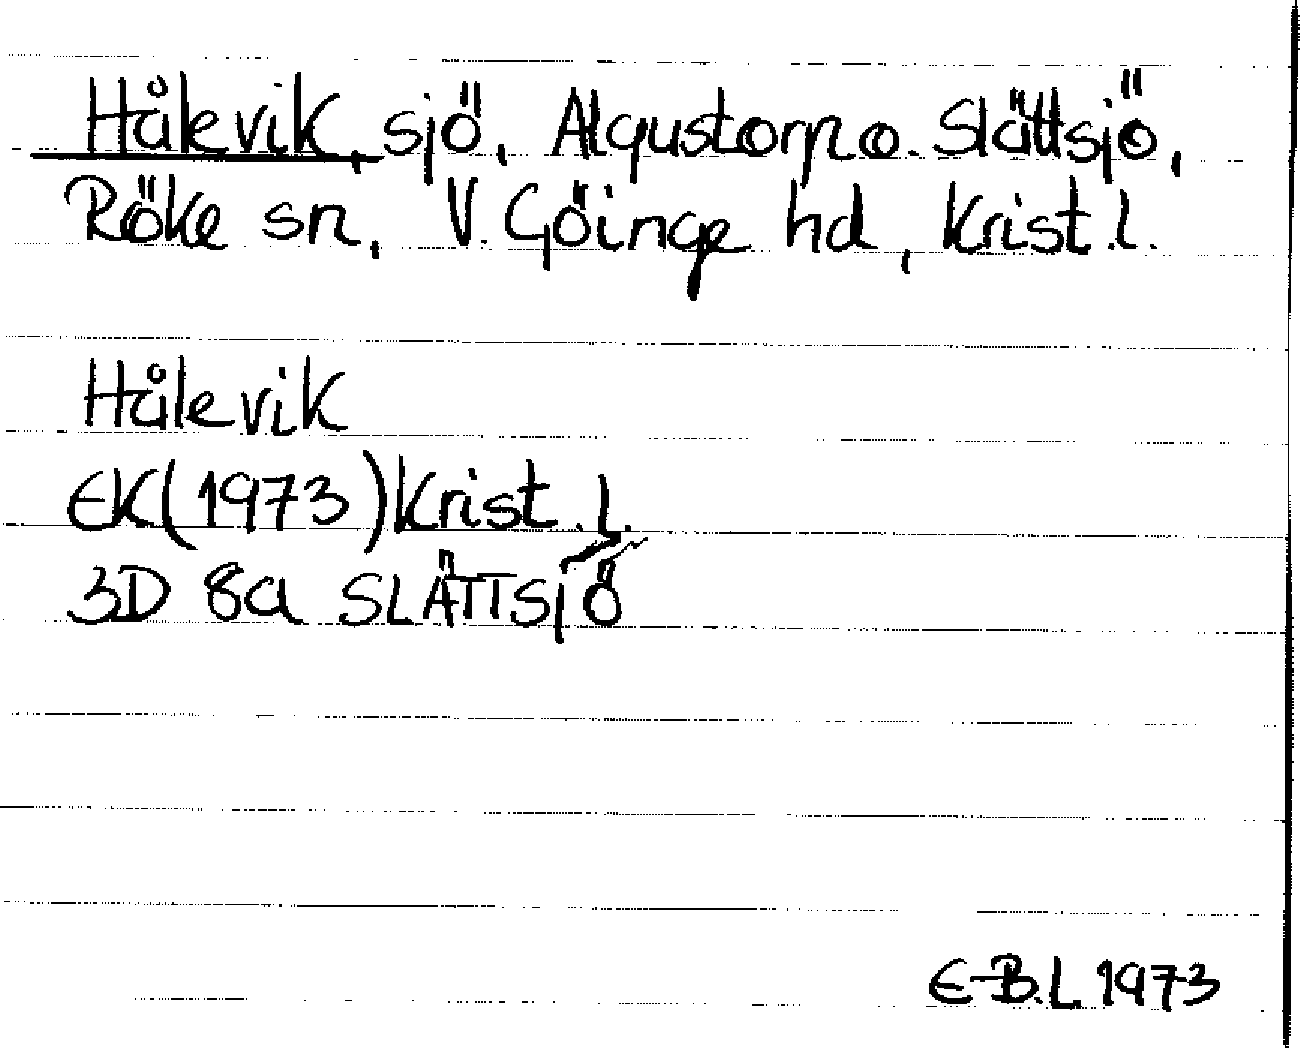 Hålevik, sjö, Algustorp o. Slättsjö,
Röke sn, V. Göinge hd, Krist.l.
Hålevik
EK(1973) Krist.l.
3D 8a SLÄTTSJÖ
E-B.L 1973